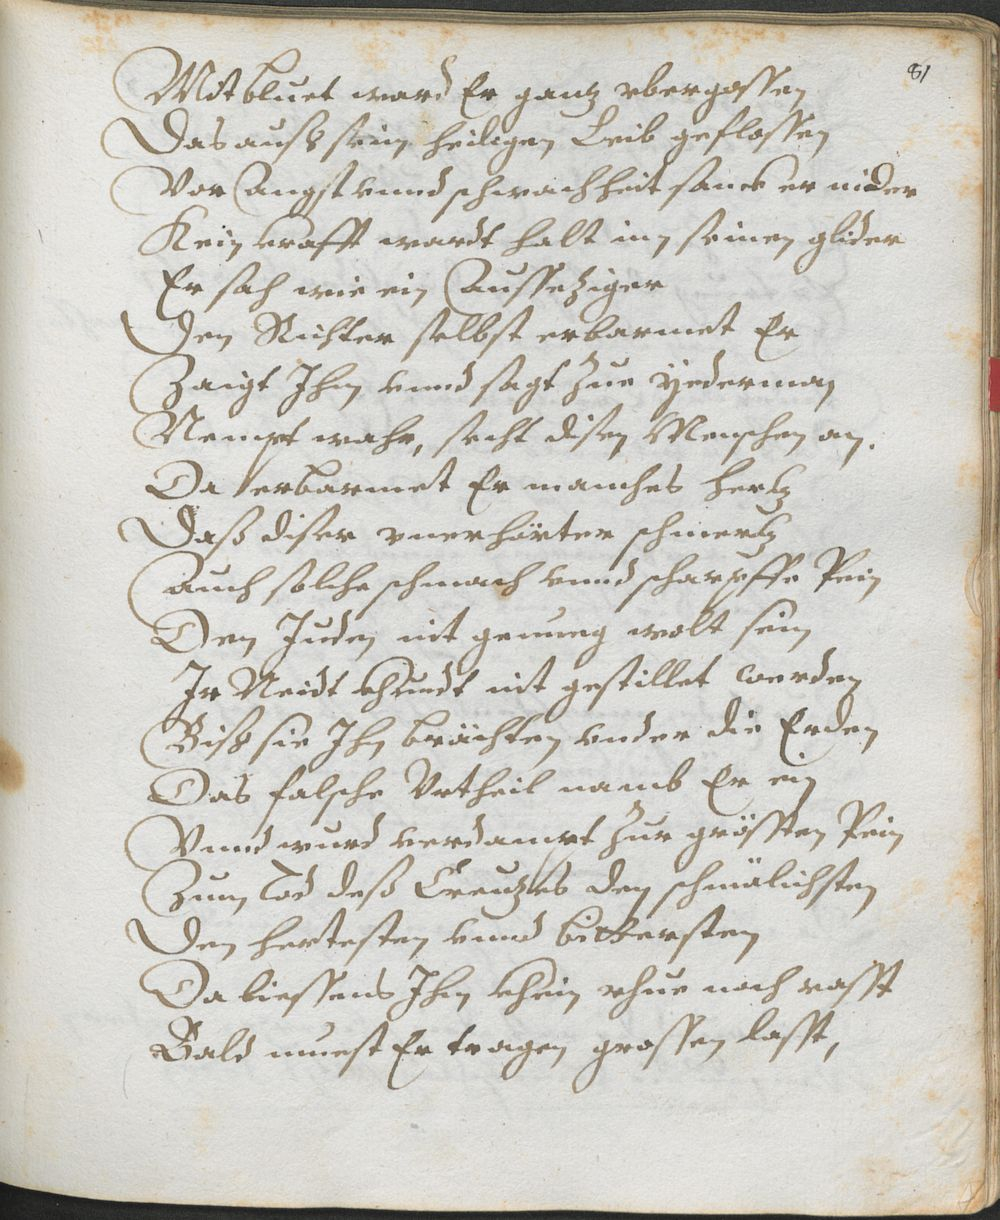 81
Mit bluet ward Er gantz vbergossen
Das auß sein heiligen Leib geflossen
Vor Angst vnnd schwachheit sanck er nider
Kein krafft wardt halt inn seinen glider
Er sach wie ein Aussetziger
Den Richter selbst erbarmet Er
Zaigt Ihn vnnd sagt zue yederman
Nempt wahr, secht disen Menschen an.
Da erbarmet Er manches hertz
Daß diser vnerhörter schmertz
Auch solche schmach vnnd scharpffe Pein
Den Juden nit genueg wolt sein
Ir Neidt khundt nit gestillet werden
Biß sie Ihn brächten vnder die Erden
Das falsche Vrtheil namb Er ein
Vnnd wurd verdampt zur grösten Pein
Zum Tod deß Creutzes den schmälichsten
Den hertesten vnnd bittersten
Da liessens Ihm khein rhue noch rasst
Bald muest Er tragen grossen lasst,